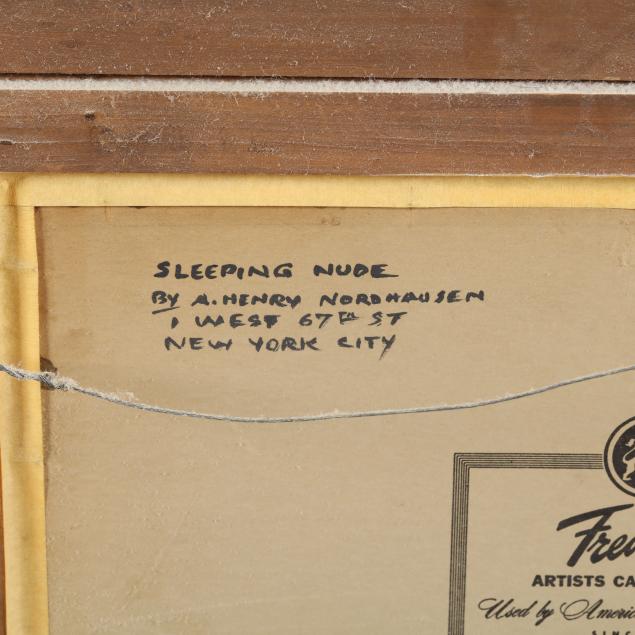 SLEEPING NUDE
BY A. HENRY NORDHAUSEN
1 WEST 67TH ST
NEW YORK CITY
ARTISTS CA
Used by Americ